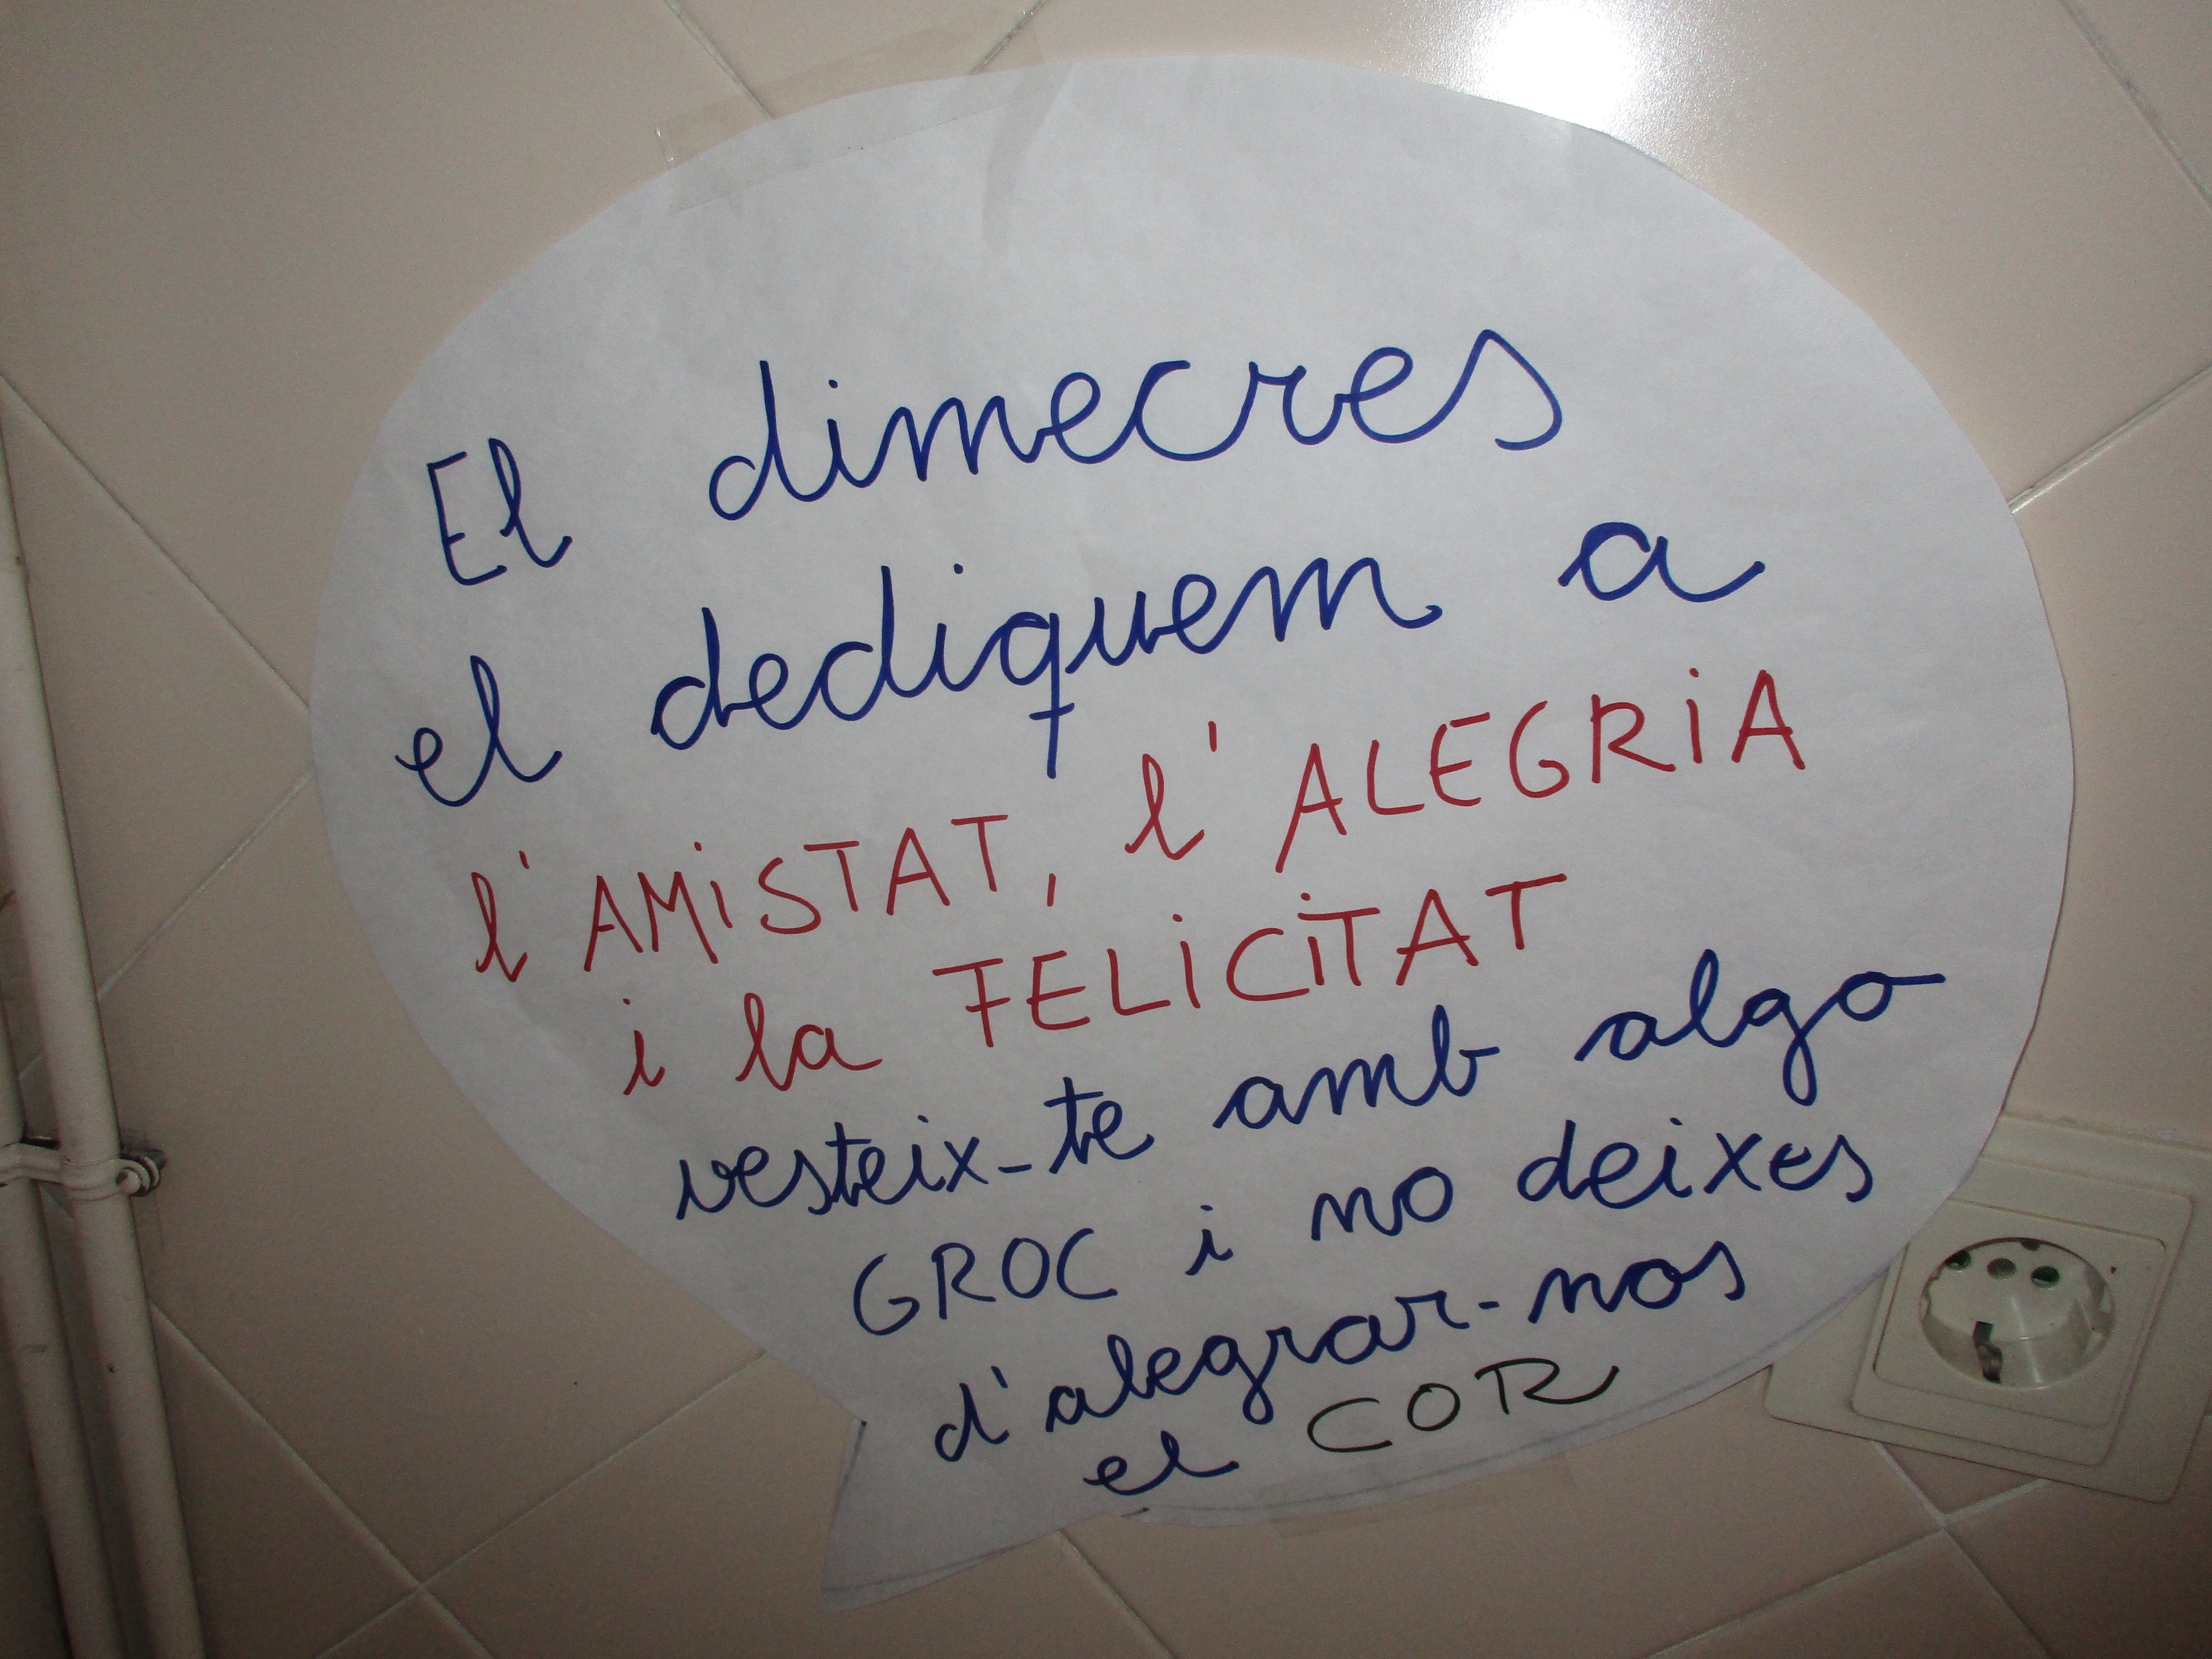 El dimecres
el dediquem a
l'AMiSTAT, l'ALEGRiA
i la FELiCiTAT
vesteix-te amb algo
GROC i no deixes
d'alegrar-nos
el COR